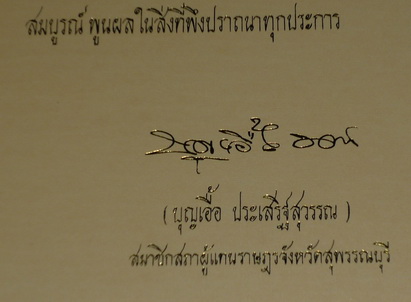 สมบูรณ์ พูนผลในสิ่งที่พึงปรารถนาทุกประการ
( บุญเอื้อ ประเสริฐสุวรรณ )
สมาชิกสภาผู้แทนราษฎรจังหวัดสุพรรณบุรี